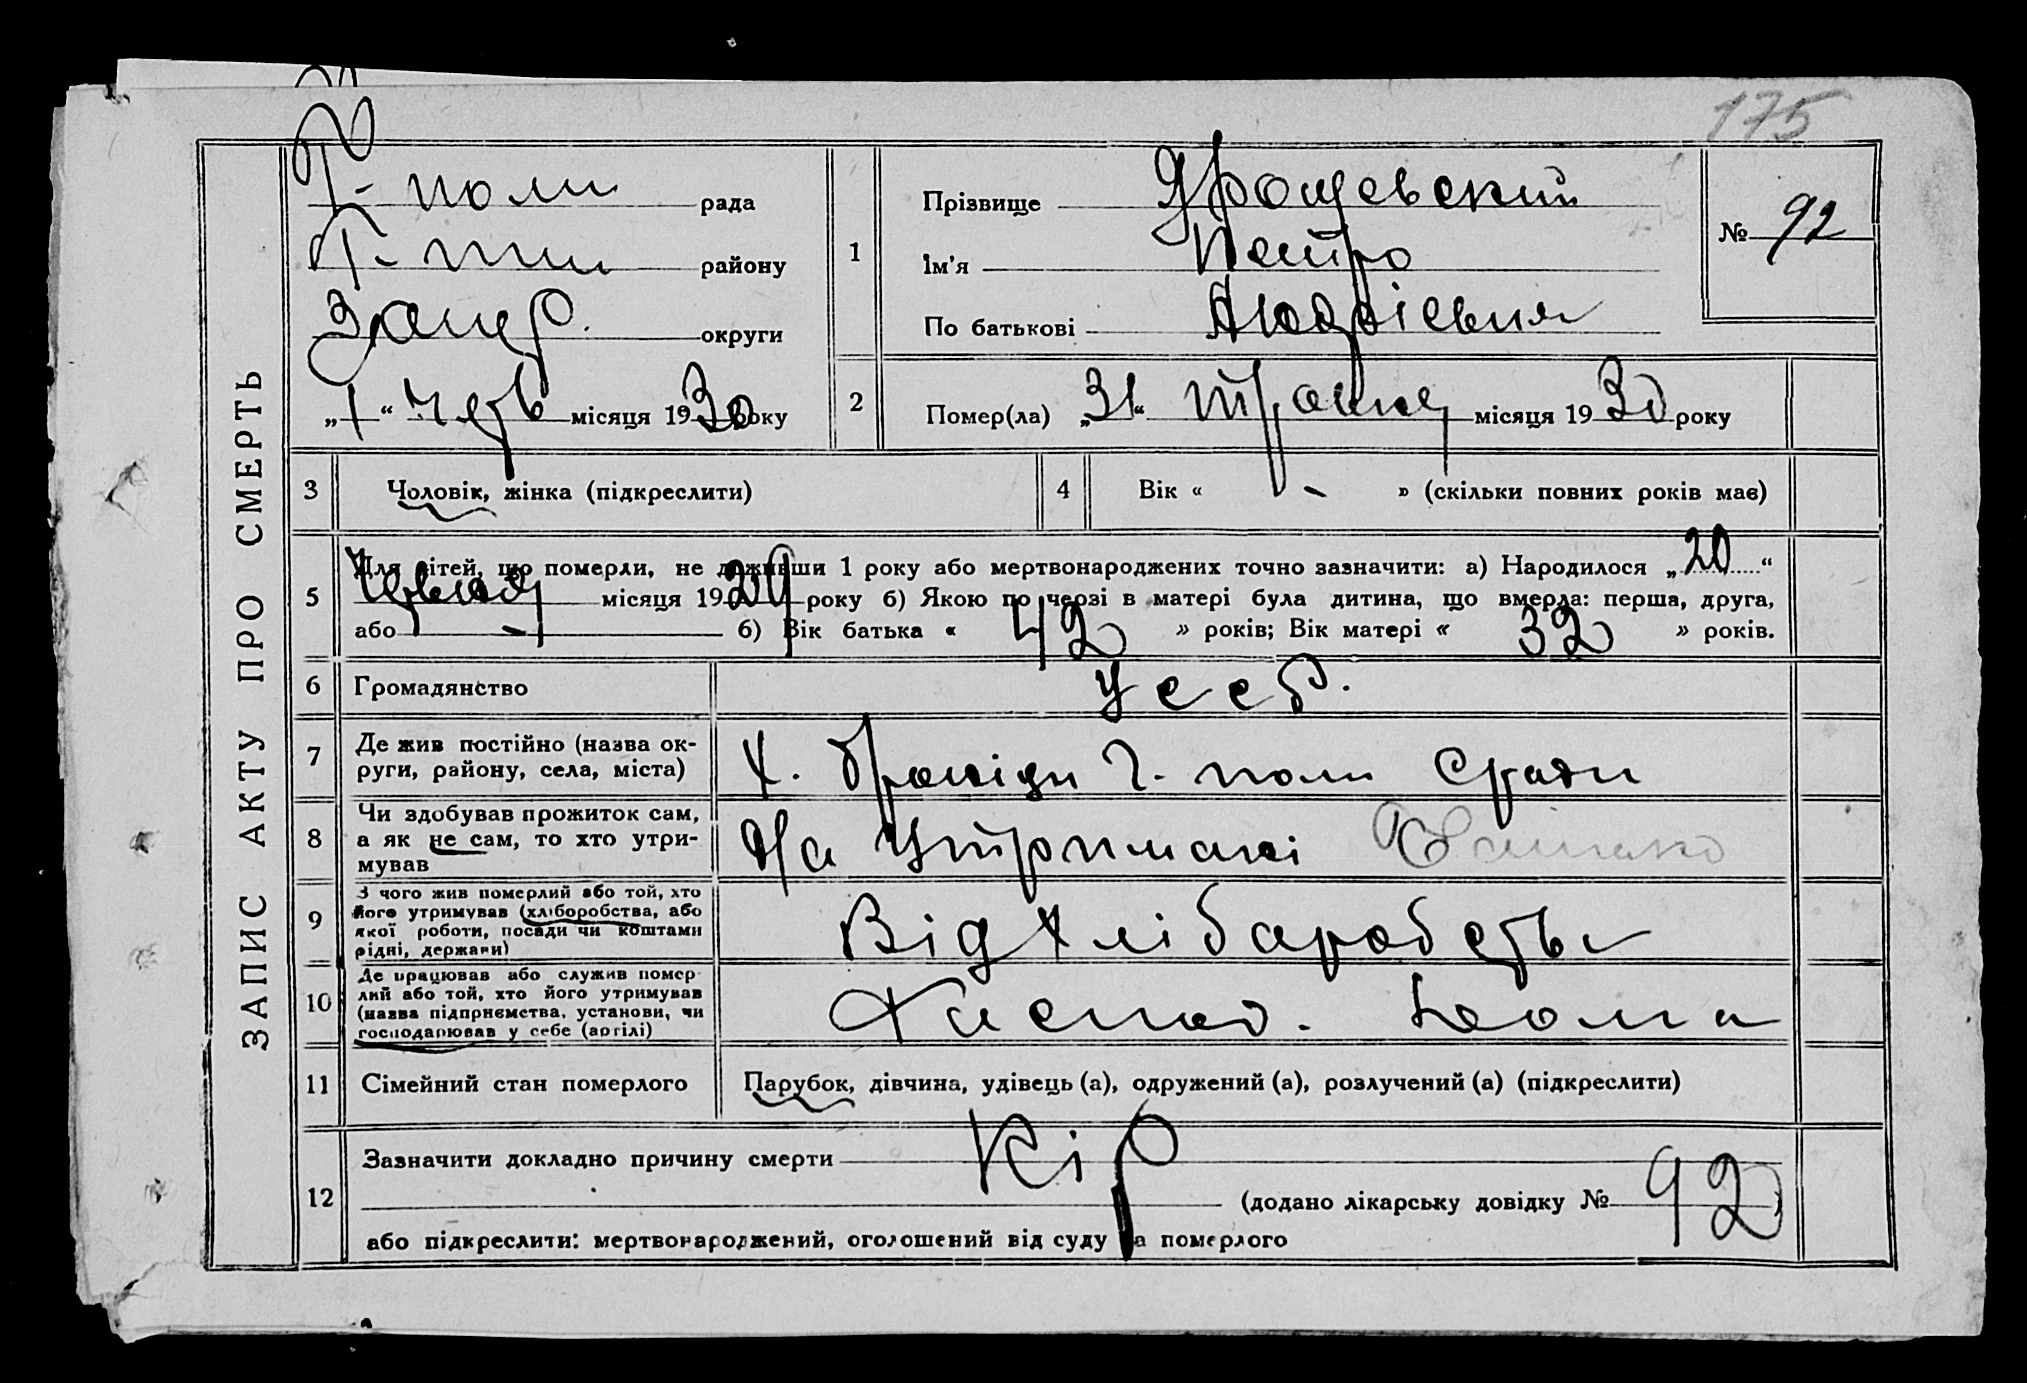 175
ЗАПИС АКТУ ПРО СМЕРТЬ
Г- поли рада
району
Запор. округи
„1“ черв місяця 1930 року
1
Прізвище Ярощевский
Ім'я Петро
По батькові Андрієвич
№ 92
2
Помер(ла) „31“ травня місяця 1930 року
3 Чоловік, жінка (підкреслити)
4 Вік « - » (скільки повних років мав)
5
Для дітей, що померли, не доживши 1 року або мертвонароджених точно зазначити: а) Народилося „20“
червня місяця 1929 року б) Якою по черзі в матері була дитина, що вмерла: перша, друга,
або - б) Вік батька « 42 » років; Вік матері « 32 » років.
6 Громадянство Усср.
7 Де жив постійно (назва ок-
руги, району, села, міста)
Х. Г- поли Сради
8 Чи здобував прожиток сам,
а як не сам, то хто утри-
мував
На утримані
9 З чого жив померлий або той, хто
його утримував (хліборобства, або
якої роботи, посади чи коштами
рідні, держави)
Від хлібаробства
10 Де працював або служив помер-
лий або той, хто його утримував
(назва підприємства, установи, чи
господарював у себе (артілі)
Гаспод. Дома
11 Сімейний стан померлого Парубок, дівчина, удівець (а), одружений (а), розлучений (а) (підкреслити)
12
Зазначити докладно причину смерти Кір
(додано лікарську довідку № 92)
або підкреслити: мертвонароджений, оголошений від суду за померлого